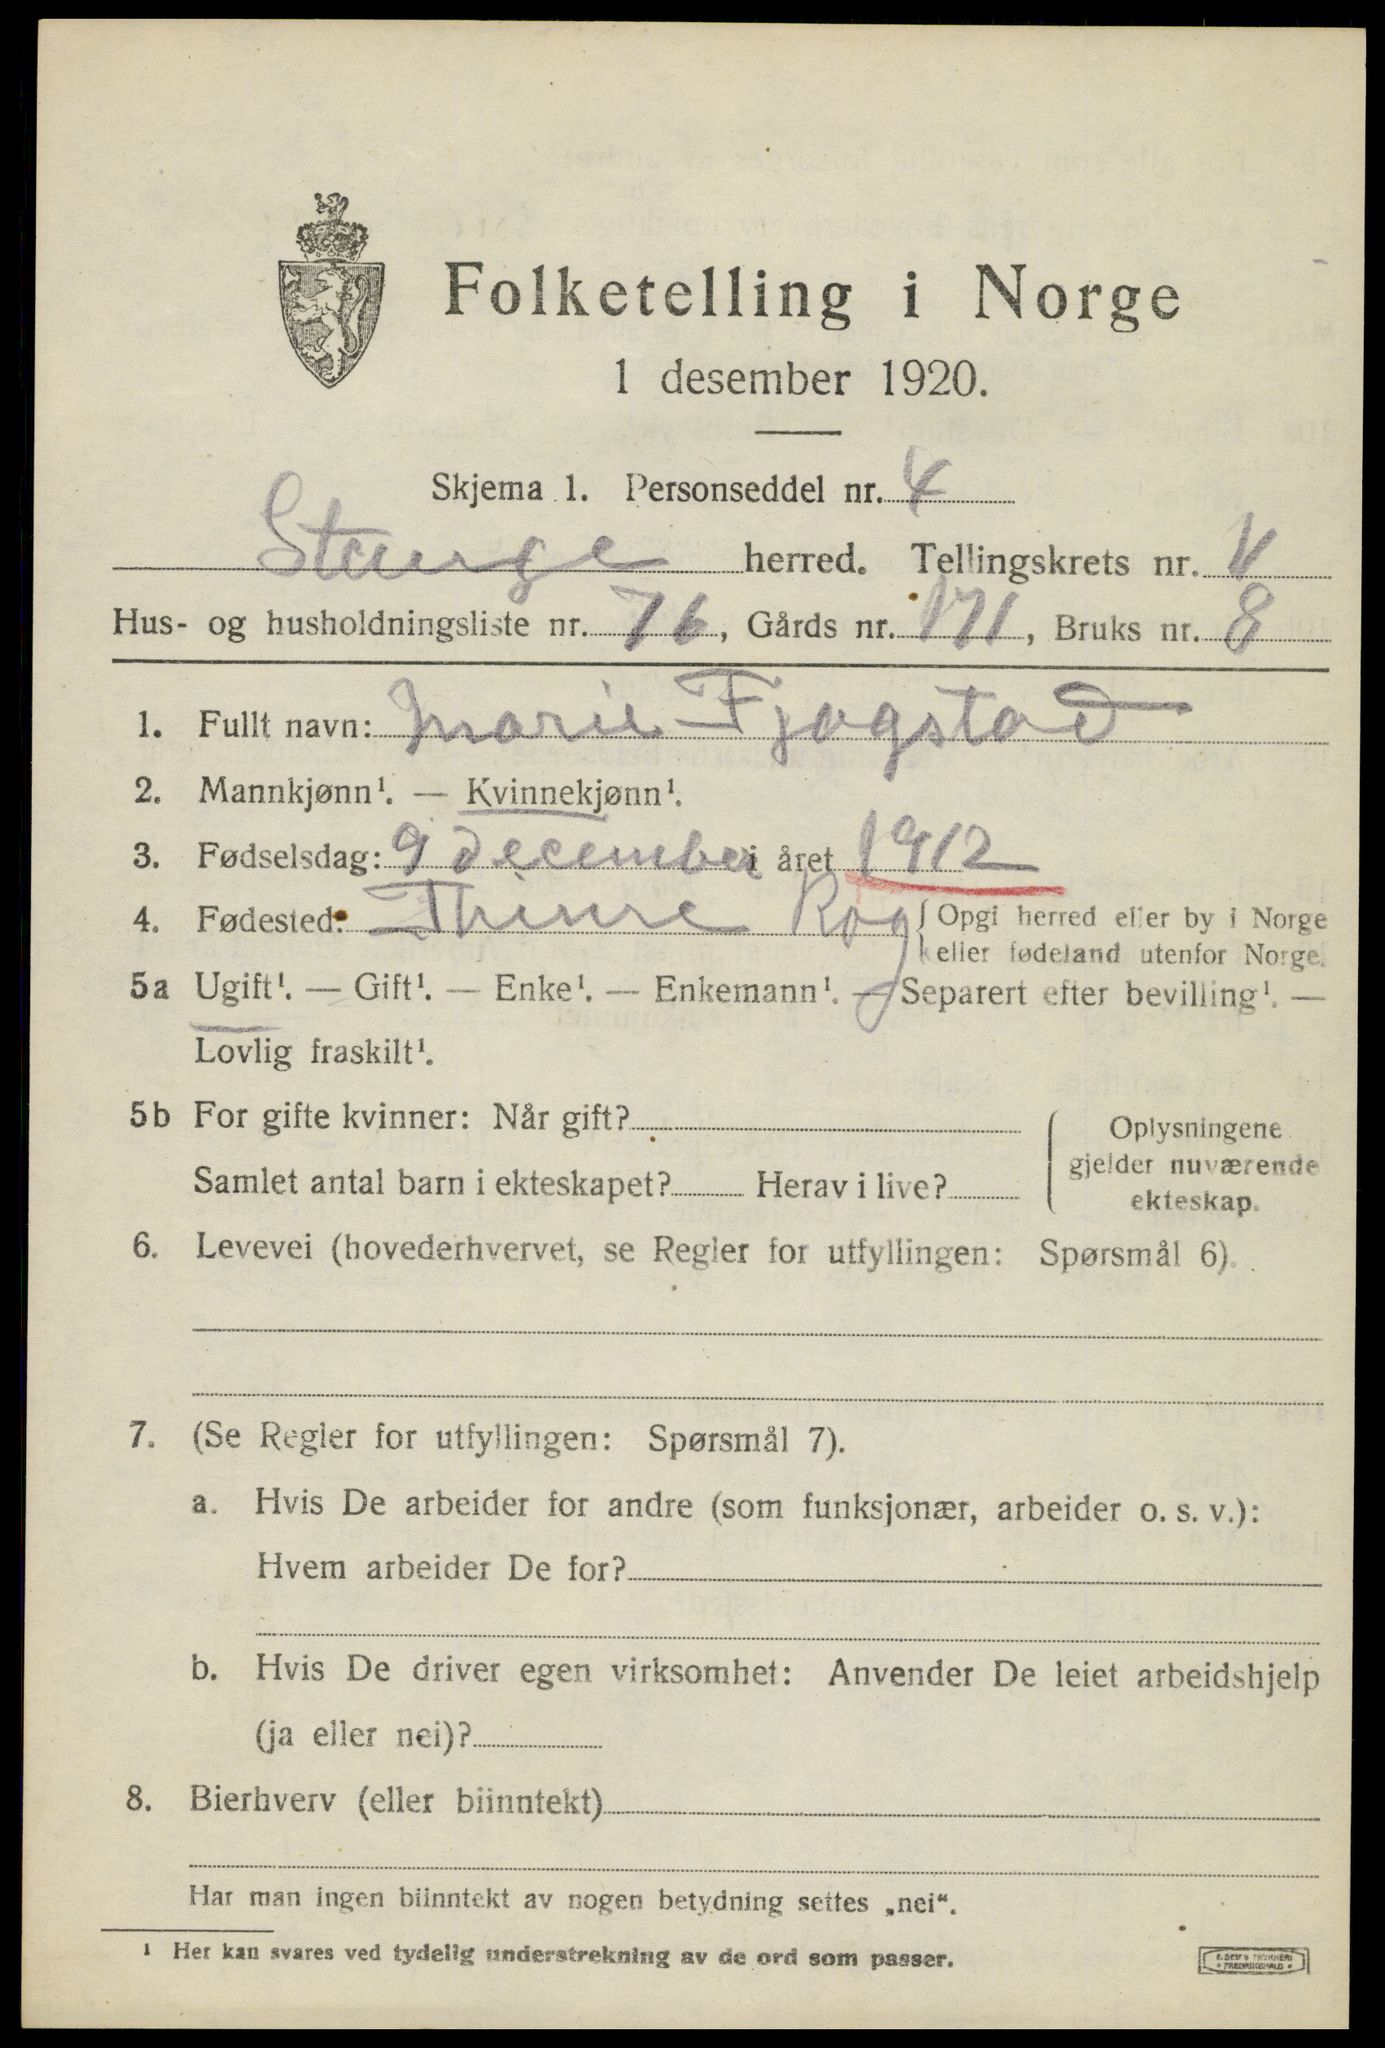 Folketelling i Norge
1 desember 1920.
Skjema 1. Personseddel nr. 4
Stange herred. Tellingskrets nr. V
Hus- og husholdningsliste nr. 76, Gårds nr. 171, Bruks nr. 8
1. Fullt navn: Marie Fjogstad
2. Mannkjønn¹. — Kvinnekjønn¹.
3. Fødselsdag: 9 december i året 1912
4. Fødested: Thime Rog { Opgi herred eller by i Norge
eller fødeland utenfor Norge.
5a Ugift¹. — Gift¹. — Enke¹. — Enkemann¹. — Separert efter bevilling¹. —
Lovlig fraskilt¹.
5b For gifte kvinner: Når gift?
Samlet antal barn i ekteskapet? Herav i live?
{ Oplysningene
gjelder nuværende
ekteskap.
6. Levevei (hovederhvervet, se Regler for utfyllingen: Spørsmål 6).
7. (Se Regler for utfyllingen: Spørsmål 7).
a. Hvis De arbeider for andre (som funksjonær, arbeider o. s. v.):
Hvem arbeider De for?
b. Hvis De driver egen virksomhet: Anvender De leiet arbeidshjelp
(ja eller nei)?
8. Bierhverv (eller biinntekt)
Har man ingen biinntekt av nogen betydning settes „nei“.
¹ Her kan svares ved tydelig understrekning av de ord som passer.